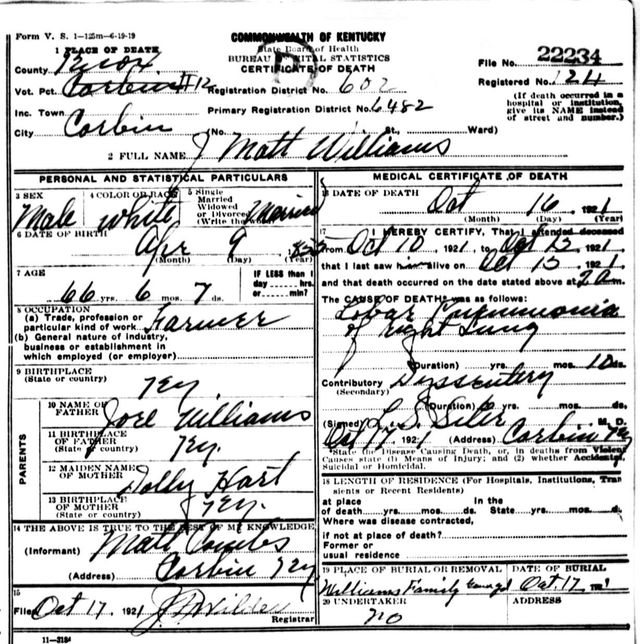 Form V. S. 1-125m-6-19-19
COMMONWEALTH OF KENTUCKY
State Board of Health
BUREAU VITAL STATISTICS
CERTIFICATE OF DEATH
File No. 22234
Registered No. 124
(If death occurred in a hospital or institution, give its NAME instead of street and number.)
1 PLACE OF DEATH
County Knox
Vot. Pct. Corbin #12 Registration District No. 602
Inc. Town Primary Registration District No. 6482
City Corbin (No. St., Ward)
2 FULL NAME J Matt Williams
PERSONAL AND STATISTICAL PARTICULARS
3 SEX Male
4 COLOR OR RACE White
5 Single Married Widowed or Divorced (Write the word) Married
6 DATE OF BIRTH Apr 9, 1855
(Month) (Day) (Year)
7 AGE 66 yrs. 6 mos. 7 ds.
IF LESS than 1 day hrs. or min.?
8 OCCUPATION
(a) Trade, profession or particular kind of work Farmer
(b) General nature of industry, business or establishment in which employed (or employer)
9 BIRTHPLACE
(State or country) Ky
PARENTS
10 NAME OF FATHER Joel Williams
11 BIRTHPLACE OF FATHER
(State or country) Ky.
12 MAIDEN NAME OF MOTHER Dolly Hart
13 BIRTHPLACE OF MOTHER
(State or country) Ky.
14 THE ABOVE IS TRUE TO THE BEST OF MY KNOWLEDGE
(Informant) Matt Combs
(Address) Corbin Ky
15
Filed Oct 17, 1921 Wilder
Registrar
11-3184
MEDICAL CERTIFICATE OF DEATH
16 DATE OF DEATH Oct 16, 1921
(Month) (Day) (Year)
17 I HEREBY CERTIFY, That I attended deceased
from Oct 10, 1921, to Oct 15, 1921
that I last saw him alive on Oct 15, 1921
and that death occurred on the date stated above at 2 a m.
The CAUSE OF DEATH was as follows:
Lobar Pneumonia
of right Lung
(Duration) yrs. mos. 10 ds.
Contributory Dyssentery
(Secondary)
(Duration) yrs. mos. ds.
(Signed) L. S. Siler M. D.
Oct 17, 1921 (Address) Corbin Ky
*State the Disease Causing Death, or, in deaths from Violent Causes state (1) Means of Injury; and (2) whether Accidental, Suicidal or Homicidal.
18 LENGTH OF RESIDENCE (For Hospitals, Institutions, Transients or Recent Residents)
at place of death yrs. mos. ds. In the State yrs. mos. ds.
Where was disease contracted,
if not at place of death?
Former or usual residence
19 PLACE OF BURIAL OR REMOVAL DATE OF BURIAL
Williams Family Oct. 17 1921
20 UNDERTAKER ADDRESS
no